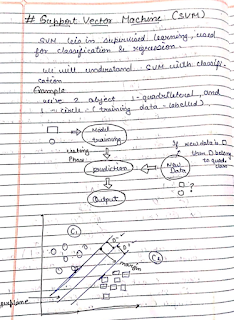 # Support Vector Machine (SVM)
SVM is in supervised learning, used
for classification & regression.
We will understand SVM with classifi-
cation
Example
we've 2 object 1 - quadrilateral, and
1 - circle (training data - labelled).
Model
training
Phase
prediction
New
Data
If new data is □
then □ belong
to quadr
class
?
Output
C1
C2
D-
D+
margin